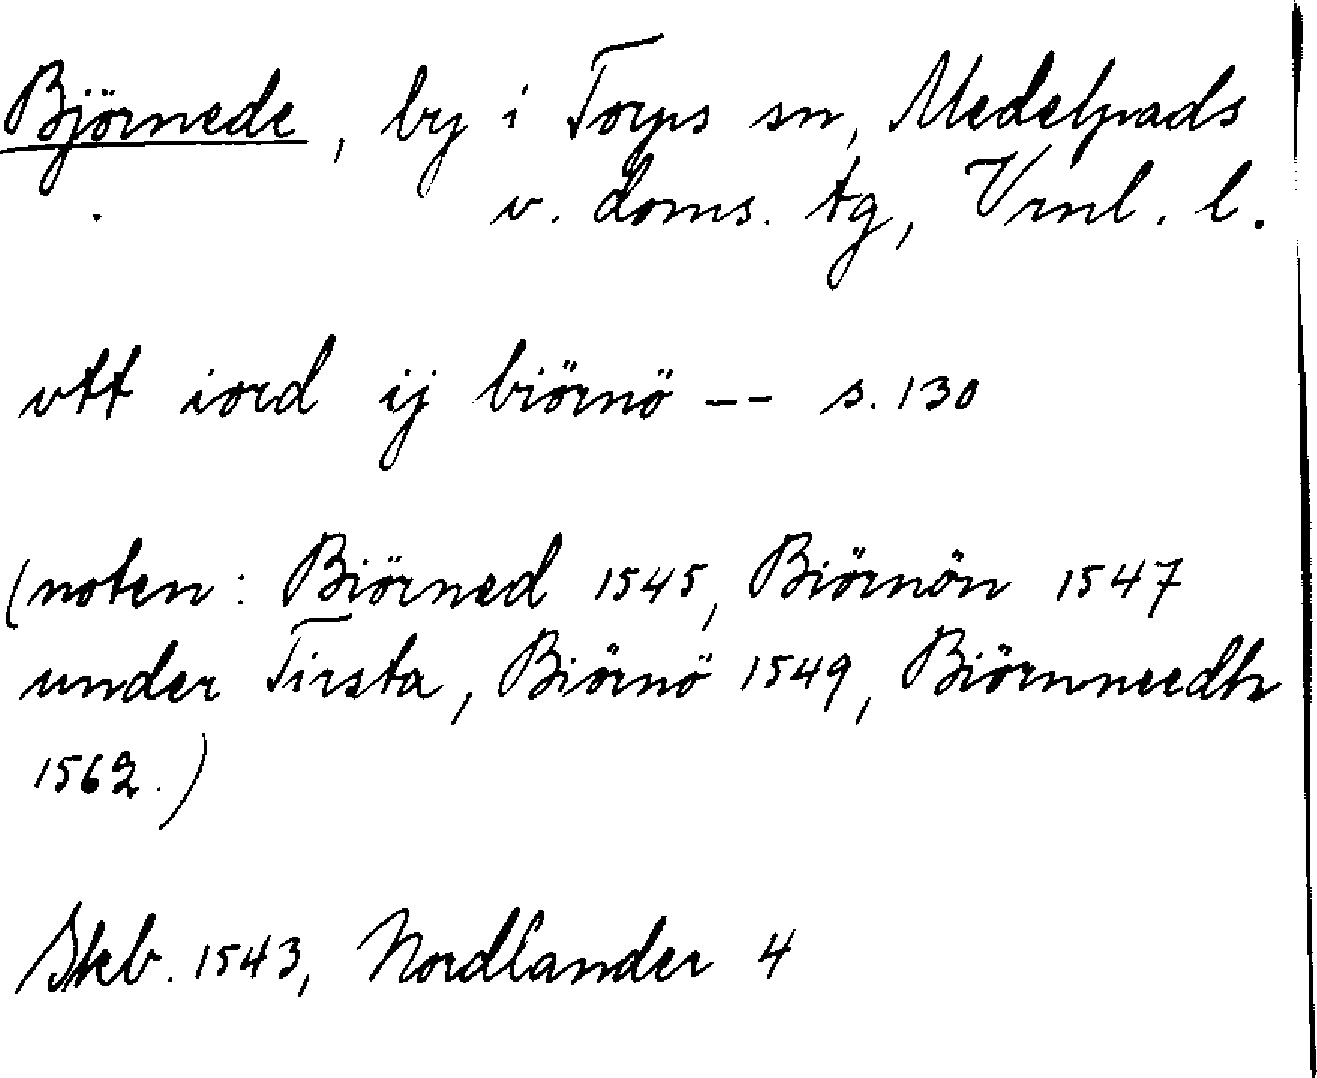 Björnede, by i Torps sn, Medelpads
v. doms. tg, Vrnl. l.
vtt iord ij biörnö -- s. 130
(noten: Biörned 1545, Biörnön 1547
under Tirsta, Biörnö 1549, Biörnneedh
1562.)
Skb. 1543, Nordlander 4